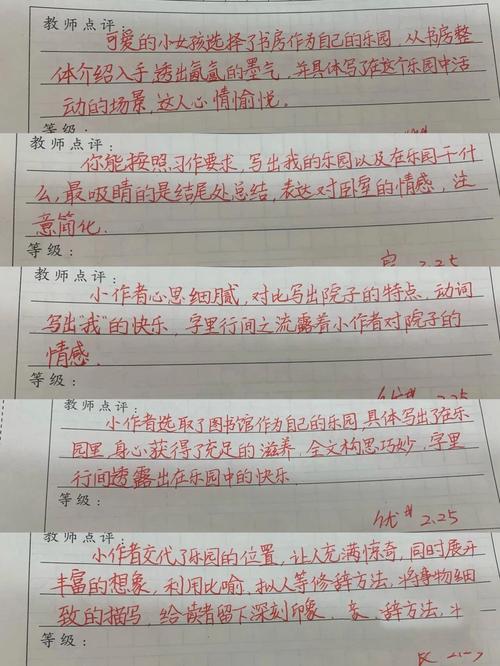 教师点评:
可爱的小女孩选择了书房作为自己的乐园,从书房整
体介绍入手透出氤氲的墨气,并具体写了在这个乐园中活
动的场景,这人心情愉悦。
等级:
教师点评:
你能按照习作要求,写出我的乐园以及在乐园干什
么,最吸睛的是结尾处总结,表达对卧室的情感,注
意简化.
等级:
2.25
教师点评:
小作者心思细腻,对比写出院子的特点,动词
写出“我”的快乐,字里行间之流露着小作者对院子的
情感.
等级:
优# 2.25
教师点评:
小作者选取了图书馆作为自己的乐园,具体写出了在乐
园里,身心获得了充足的滋养,全文构思巧妙,字里
行间透露出在乐园中的快乐.
等级:
优# 2.25
教师点评:
小作者交代了乐园的位置,让人充满惊奇,同时展开
丰富的想象,利用比喻,拟人等修辞方法,将事物细
致的描写,给读者留下深刻印象,辞方法,
等级: